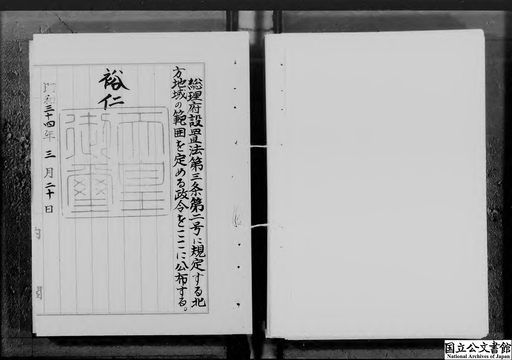 総理府設置法第三条第二号に規定する北
方地域の範囲を定める政令をここに公布する。
裕仁
天皇
御璽
昭和三十四年 三 月 二十 日
国立公文書館
National Archives of Japan